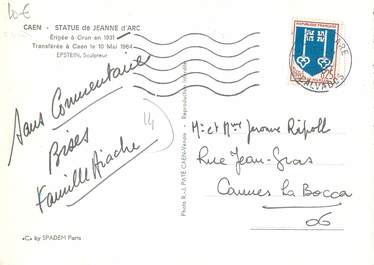 10 €
CAEN - STATUE de JEANNE d'ARC
Érigée à Oran en 1931
Transférée à Caen le 10 Mai 1964
EPSTEIN, Sculpteur
Sans Commentaire
Bises
Famille Hiache
14
«C» by SPADEM Paris
Photo R.-J. PATÉ CAEN-Venoix - Reproduction
RÉPUBLIQUE FRANÇAISE
0,25
GARE
CALVADOS
Mr et Mme Jerome Ripoll
Rue Jean-Gras
Cannes la Bocca
06